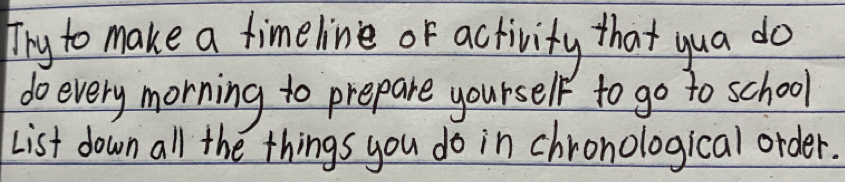 Try to make a timeline of activity that yua do
do every morning to prepare yourself to go to school
List down all the things you do in chronological order.